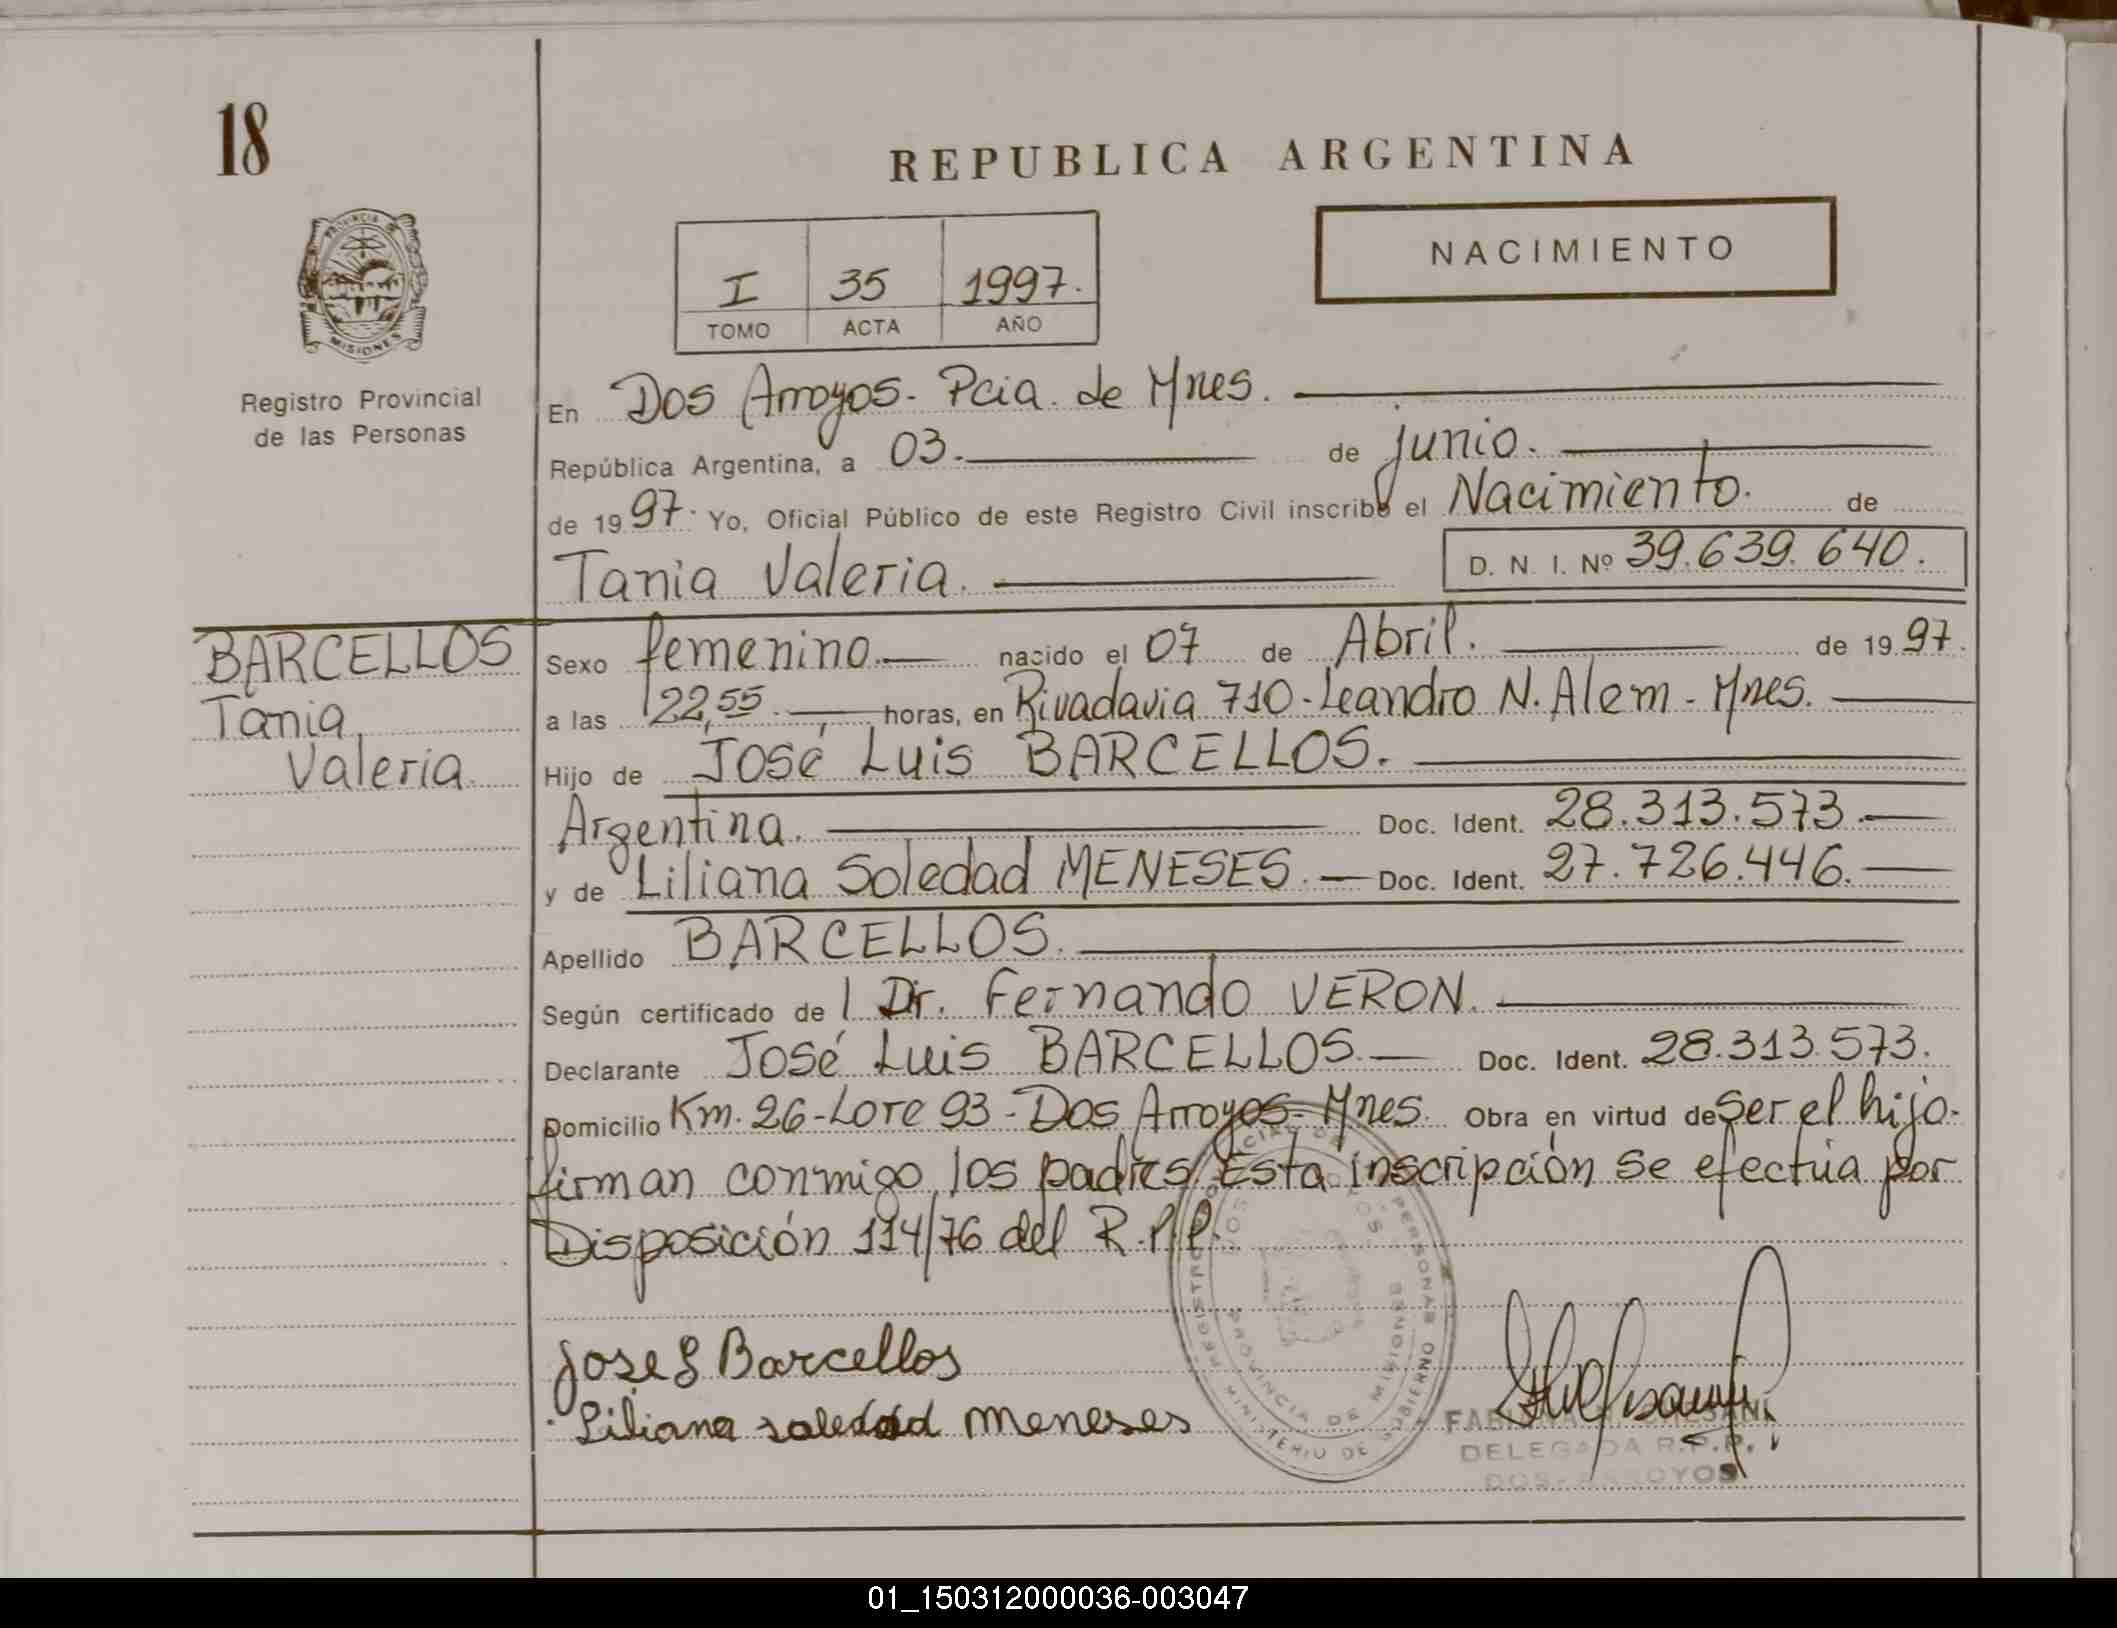 18
REPUBLICA ARGENTINA
PROVINCIA DE
MISIONES
Registro Provincial
de las Personas
NACIMIENTO
I 35 1997.
TOMO ACTA AÑO
En Dos Arroyos. Pcia. de Mnes.
República Argentina, a 03. de junio.
de 1997. Yo, Oficial Público de este Registro Civil inscribo el Nacimiento. de
Tania Valeria. D. N. I. Nº 39.639.640.
BARCELLOS
Tania
Valeria.
Sexo femenino. nacido el 07 de Abril. de 1997.
a las 22,55. horas, en Rivadavia 710-Leandro N. Alem - Mnes.
Hijo de José Luis BARCELLOS.
Argentina. Doc. Ident. 28.313.573.
y de Liliana Soledad MENESES. Doc. Ident. 27.726.446.
Apellido BARCELLOS.
Según certificado de l Dr. Fernando VERON.
Declarante José Luis BARCELLOS. Doc. Ident. 28.313.573.
Domicilio Km. 26-Lote 93-Dos Arroyos-Mnes. Obra en virtud de ser el hijo.
firman conmigo los padres. Esta inscripción se efectúa por
Disposición 114/76 del R.P.P.
Jose L Barcellos
Liliana soledad meneses
REGISTRO PROVINCIAL DE LAS PERSONAS
MINISTERIO DE GOBIERNO
DOS ARROYOS
PROVINCIA DE MISIONES
DELEGADA R.P.P.
DOS-ARROYOS
01_150312000036-003047